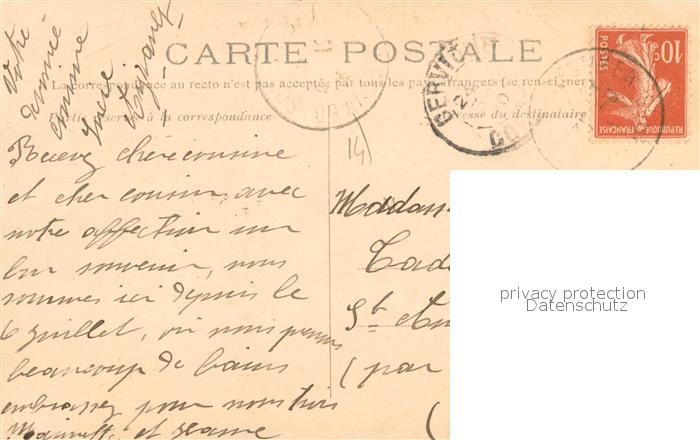 Votre
cousine
CARTE POSTALE
La correspondance au recto n'est pas acceptée par tous les pays étrangers (se renseigner
Partie réservée à la correspondance
Adresse du destinataire
10c
POSTES
REPUBLIQUE FRANÇAISE
14
Recevez chère cousine
et cher cousin avec
notre affection un
bon souvenir, nous
sommes ici depuis le
6 juillet, où nous prenons
beaucoup de bains
embrassez pour nous trois
et Jeanne
Madame
St
(par
(
privacy protection
Datenschutz